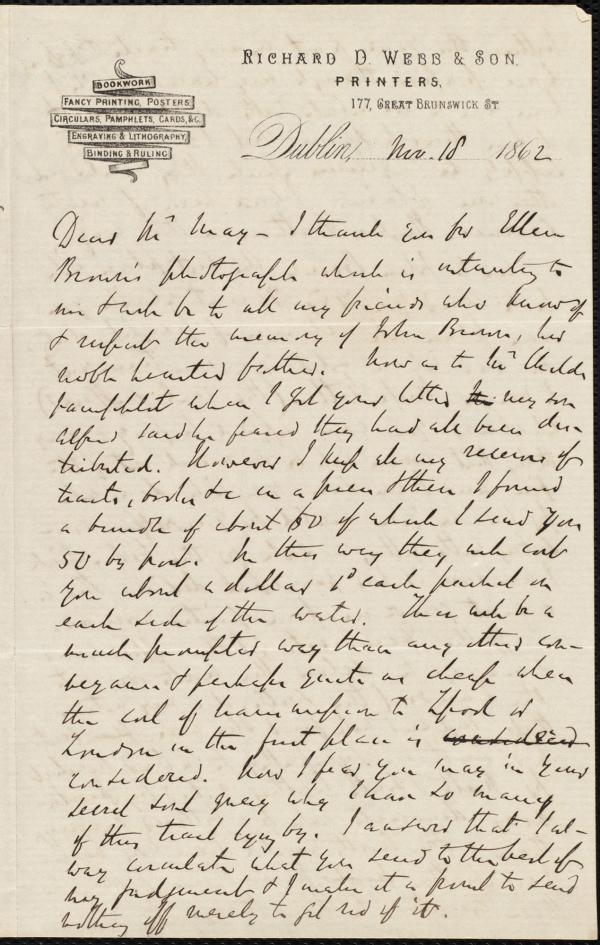 RICHARD D. WEBB & SON,
PRINTERS,
177, GREAT BRUNSWICK ST
BOOKWORK
FANCY PRINTING, POSTERS
CIRCULARS, PAMPHLETS, CARDS, &C.
ENGRAVING & LITHOGRAPHY
BINDING & RULING
Dublin, Nov. 18 1862
Dear Mr May – I thank you for Ellen
Brown's photograph which is interesting to
me & will be to all my friends who know of
& respect the memory of John Brown, her
noble hearted father. Now as to Mrs Childs
pamphlet when I got your letter my son
Alfred said he feared they had all been dis-
tributed. However I keep all my reserves of
tracts, books &c in a press & there I found
a bundle of about 60 of which I send you
50 by post. In this way they will cost
you about a dollar 1d each packet on
each side of the water. This will be a
much prompter way than any other con-
veyance & perhaps quite as cheap when
the cost of transmission to Lpool or
London in the first place is considered
considered. Now I fear you may in your
secret soul query why I have so many
of this tract lying by. I answer that I al-
way circulate what you send to the best of
my judgment & I make it a point to send
nothing off merely to get rid of it.